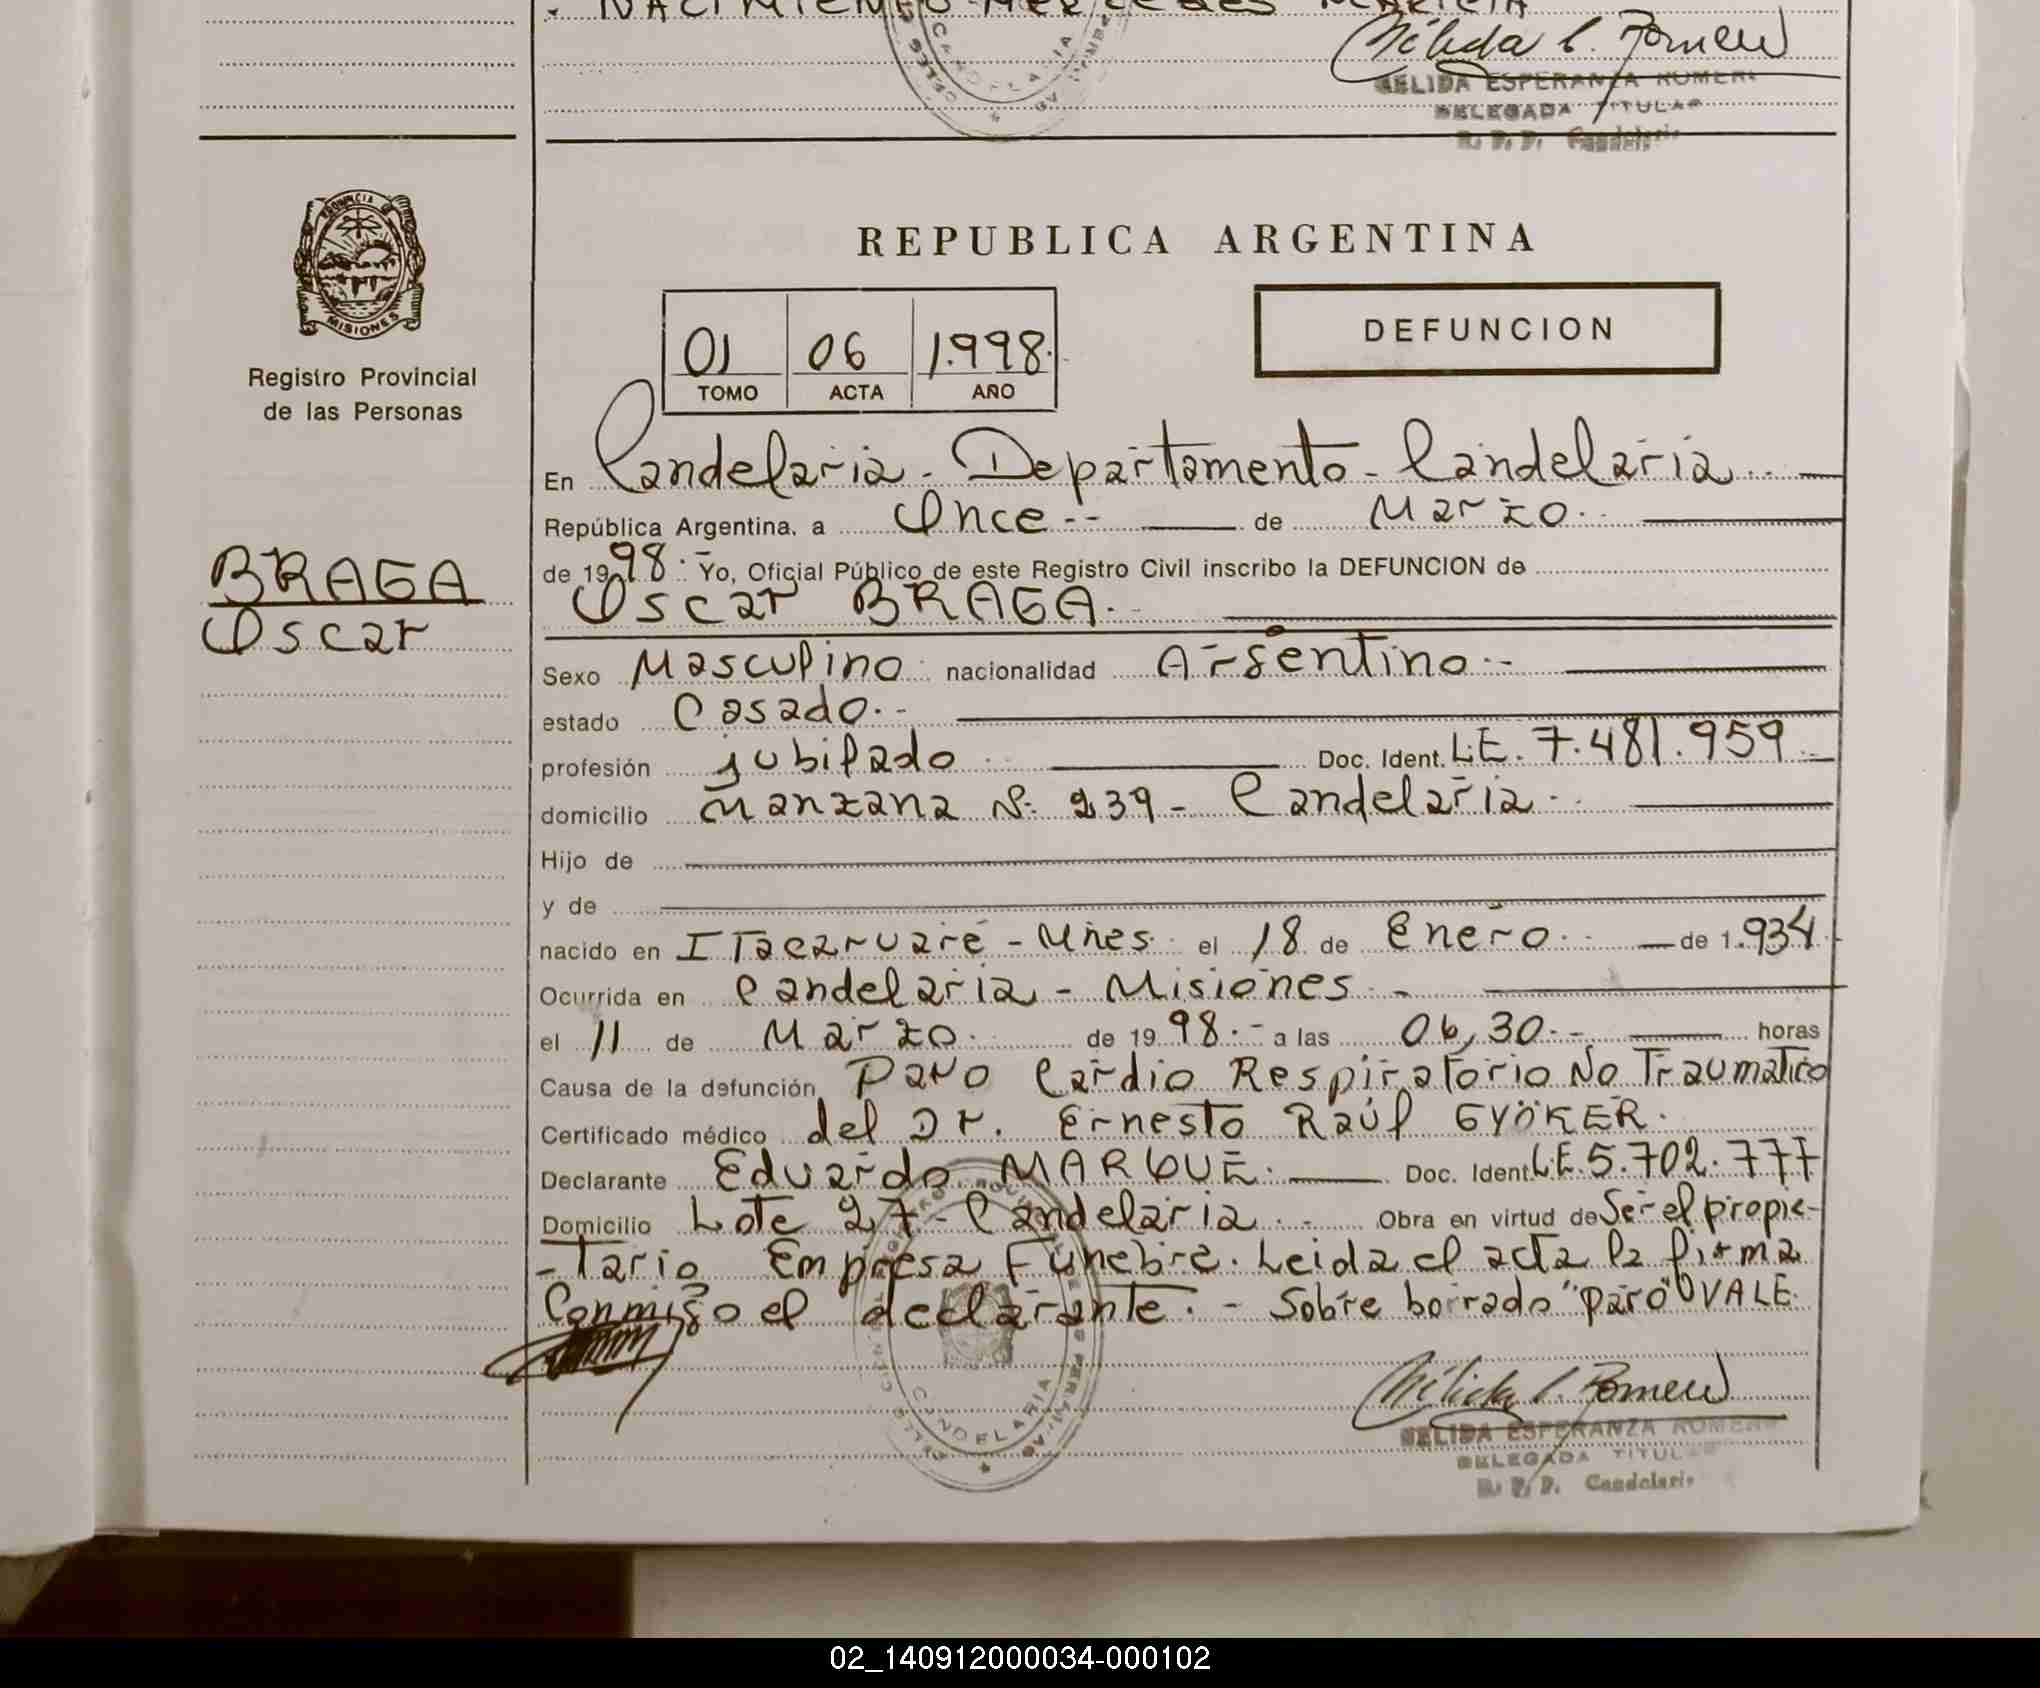 . NACIMIENTO MERCEDES
Nélida E. Romero
NELIDA ESPERANZA ROMERO
DELEGADA TITULAR
R. P. P. Candelaria
PROVINCIA DE
MISIONES
Registro Provincial
de las Personas
REPUBLICA ARGENTINA
01 06 1.998.
TOMO ACTA AÑO
DEFUNCION
En Candelaria - Departamento - Candelaria
República Argentina, a Once -- de Marzo.
de 1998.- Yo, Oficial Público de este Registro Civil inscribo la DEFUNCION de
BRAGA
Oscar
Oscar BRAGA.
Sexo Masculino nacionalidad Argentino.-
estado Casado.-
profesión jubilado Doc. Ident. L.E. 7.481.959
domicilio Manzana Nº 239 - Candelaria.
Hijo de
y de
nacido en Itacaruaré - Mnes. el 18 de Enero. de 1.934.
Ocurrida en Candelaria - Misiones. -
el 11 de Marzo. de 1998.- a las 06,30.- horas
Causa de la defunción Paro Cardio Respiratorio No Traumatico
Certificado médico del Dr. Ernesto Raúl GYÖKER.
Declarante Eduardo MARQUE. Doc. Ident. L.E. 5.702.777
Domicilio Lote 27 - Candelaria. - Obra en virtud de Ser el propie-
-tario Empresa Funebre. Leida el acta la firma
Conmigo el declarante. - Sobre borrado "Paro" VALE.
CANDELARIA
Nélida E. Romero
NELIDA ESPERANZA ROMERO
DELEGADA TITULAR
R. P. P. Candelaria
02_140912000034-000102